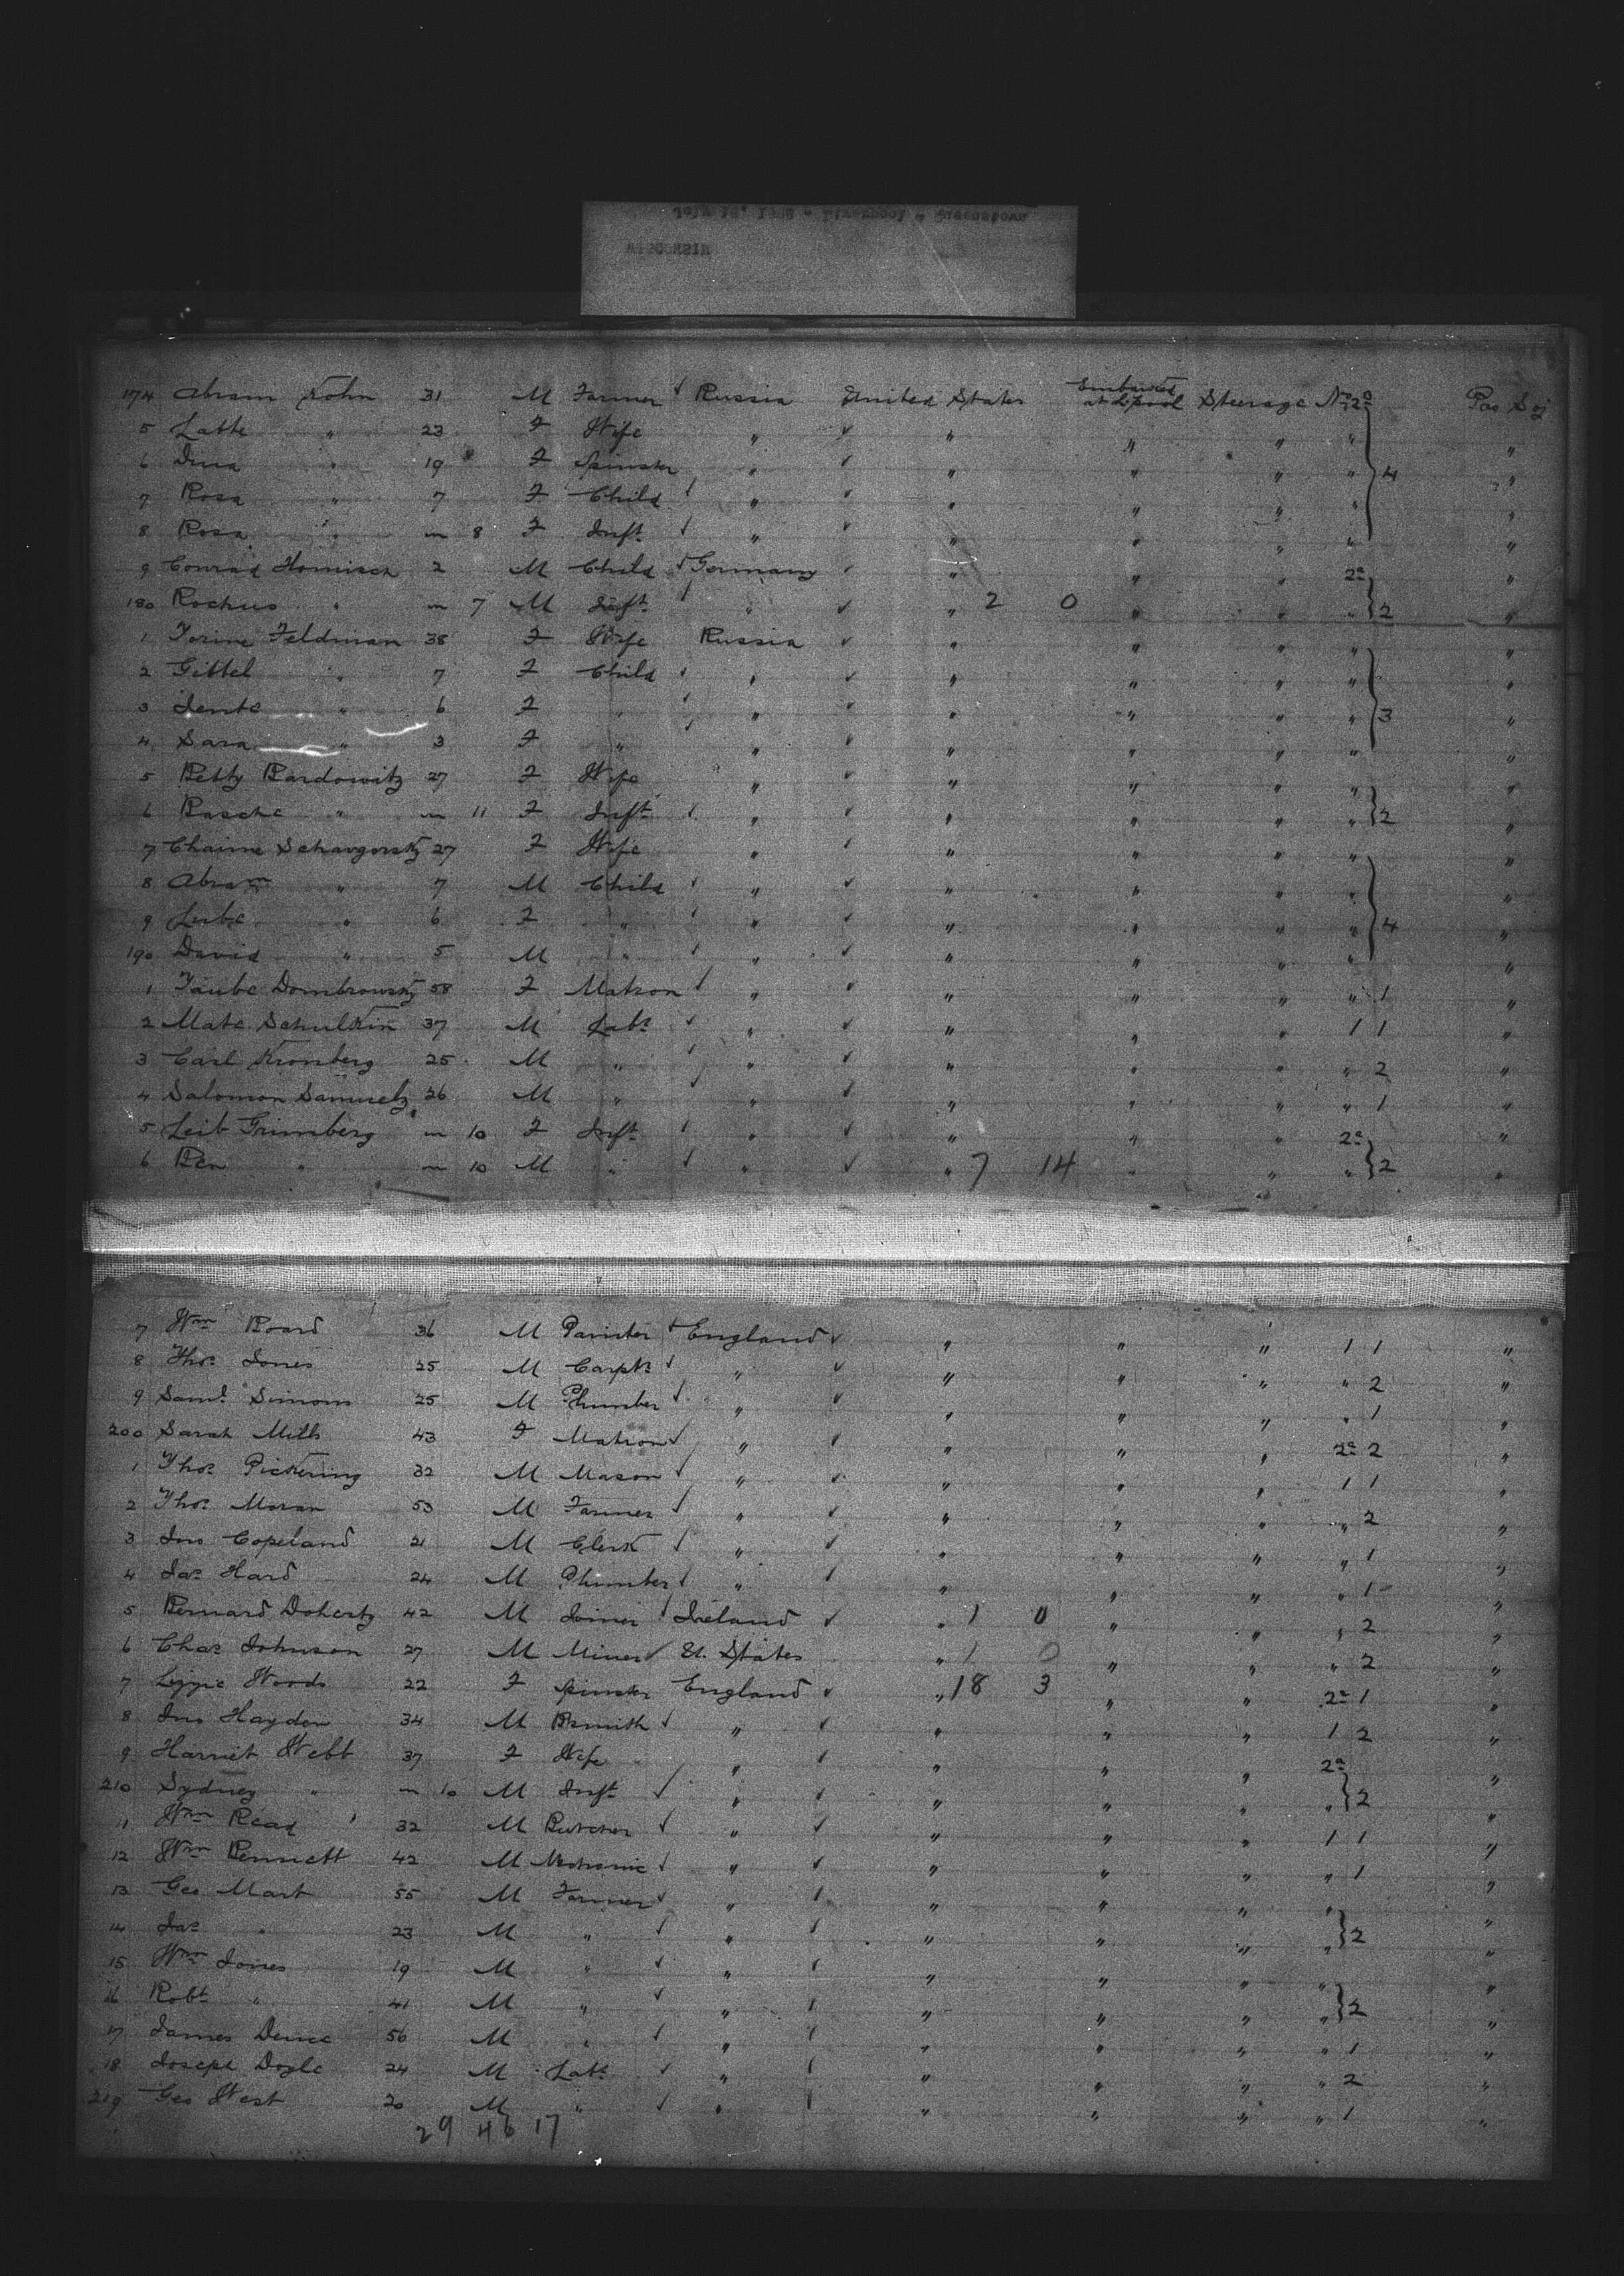 WISCONSIN
174 Abram Kohn 31 M Farmer Russia United States Embarked at L'pool Steerage No 2a Pro Soj
5 " 23 F Wife " " " " " "
6 Dina " 19 F Spinster " " " " " 4 "
7 Rosa " 7 F Child " " " " " "
8 Rosa " m 8 F Inft " " " " " "
9 Conrad Homisch 2 M Child Germany " " " 2a "
180 Rochus " m 7 M Inft " " 2 0 " " " 2 "
1 Feldman 38 F Wife Russia " " " " "
2 Gittel " 7 F Child " " " " " "
3 Jente " 6 F " " " " " " 3 "
4 Sara " 3 F " " " " " " "
5 Betty Bardowitz 27 F Wife " " " " " "
6 Rasche " m 11 F Inft " " " " " 2 "
7 Chaime 27 F Wife " " " " " "
8 Abram " 7 M Child " " " " " "
9 Lube " 6 F " " " " " " 4 "
190 David " 5 M " " " " " " "
1 Taube Dombrowsky 58 F Matron " " " " " 1 "
2 Mate Schulkin 37 M Labr " " " " 1 1 "
3 Carl Kronberg 25 M " " " " " " 2 "
4 Salomon 26 M " " " " " " 1 "
5 Leib Grimberg m 10 F Inft " " " " 2a "
6 Ben " m 10 M " " " 7 14 " " " 2 "
7 Wm Board 36 M England " " " 1 1 "
8 Thos Jones 25 M Carptr " " " " " 2 "
9 Saml Simons 25 M Plumber " " " " " 1 "
200 Sarah Mills 43 F Matron " " " " 2a 2 "
1 Thos Pickering 32 M Mason " " " " 1 1 "
2 Thos Moran 53 M Farmer " " " " " 2 "
3 Jno Copeland 21 M Clerk " " " " " 1 "
4 Jas Hard 24 M Plumber " " " " " 1 "
5 Bernard Doherty 42 M Joiner Ireland " 1 0 " " " 2 "
6 Chas Johnson 27 M Miner U. States " 1 0 " " " 2 "
7 Lizzie Woods 22 F Spinster England " 18 3 " " 2a 1 "
8 Jno Hayden 34 M Bsmith " " " " 1 2 "
9 Harriet Webb 37 F Wife " " " " 2a "
210 Sydney " m 10 M Inft " " " " " 2 "
11 Wm Read 32 M Butcher " " " " 1 1 "
12 Wm Bennett 42 M Mechanic " " " " " 1 "
13 Geo Mart 55 M Farmer " " " " " "
14 Jas " 23 M " " " " " " 2 "
15 Wm Jones 19 M " " " " " " "
16 Robt " 41 M " " " " " " 2 "
17 James 56 M " " " " " " 1 "
18 Joseph Doyle 24 M Labr " " " " " 2 "
219 Geo West 20 M " " " " " " 1 "
29 46 17